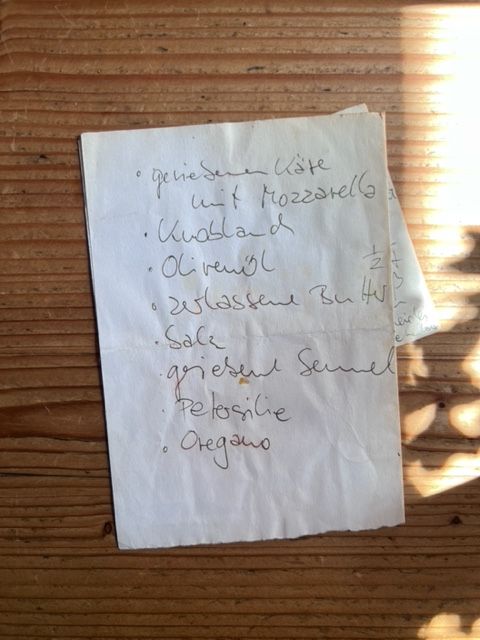 • geriesenen Käse
mit Mozzarella
• Knoblauch
• Olivenöl
• zerlassene Butter
• Salz
• geriesene Semmel
• Petersilie
• Oregano
1/2